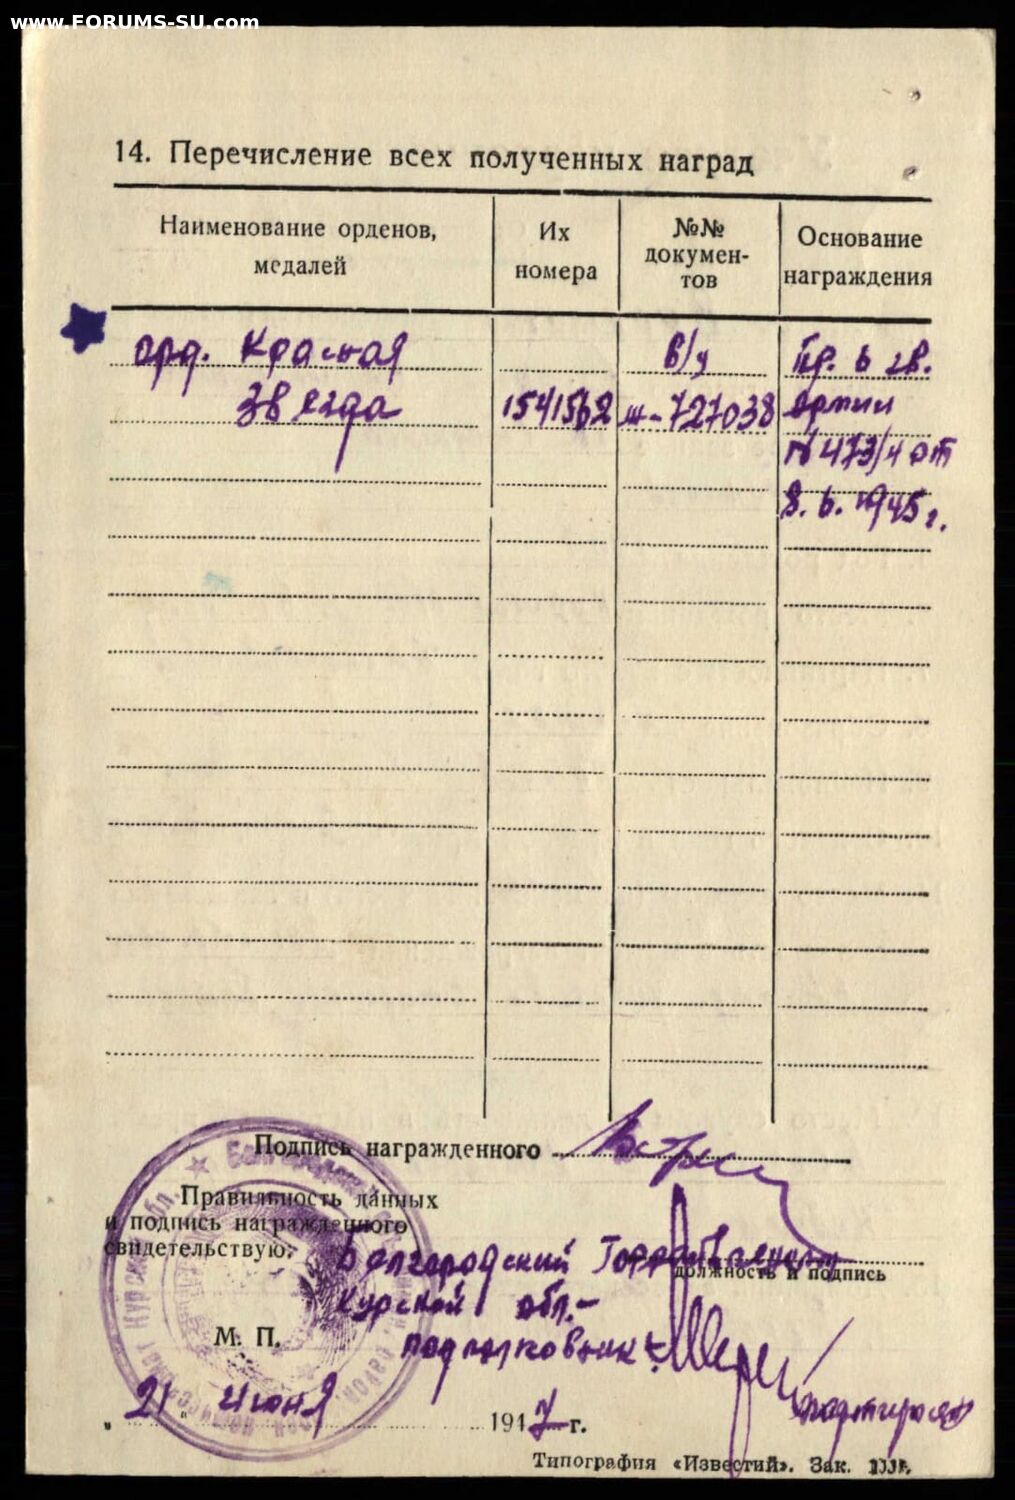 www.FORUMS-SU.com
14. Перечисление всех полученных наград
Наименование орденов, медалей
Их номера
№№ докумен-тов
Основание награждения
орд. Красная в/у Пр. 6 гв.
Звезда 1541562 ш-727038 армии
№ 473/н от
8.6.1945 г.
Подпись награжденного
Правильность данных
и подпись награжденного
свидетельствую:
Белгородский Горвоенком
должность и подпись
Курской обл.-
подполковник
М. П.
„ 21 " июня 1947 г.
Типография «Известий». Зак.